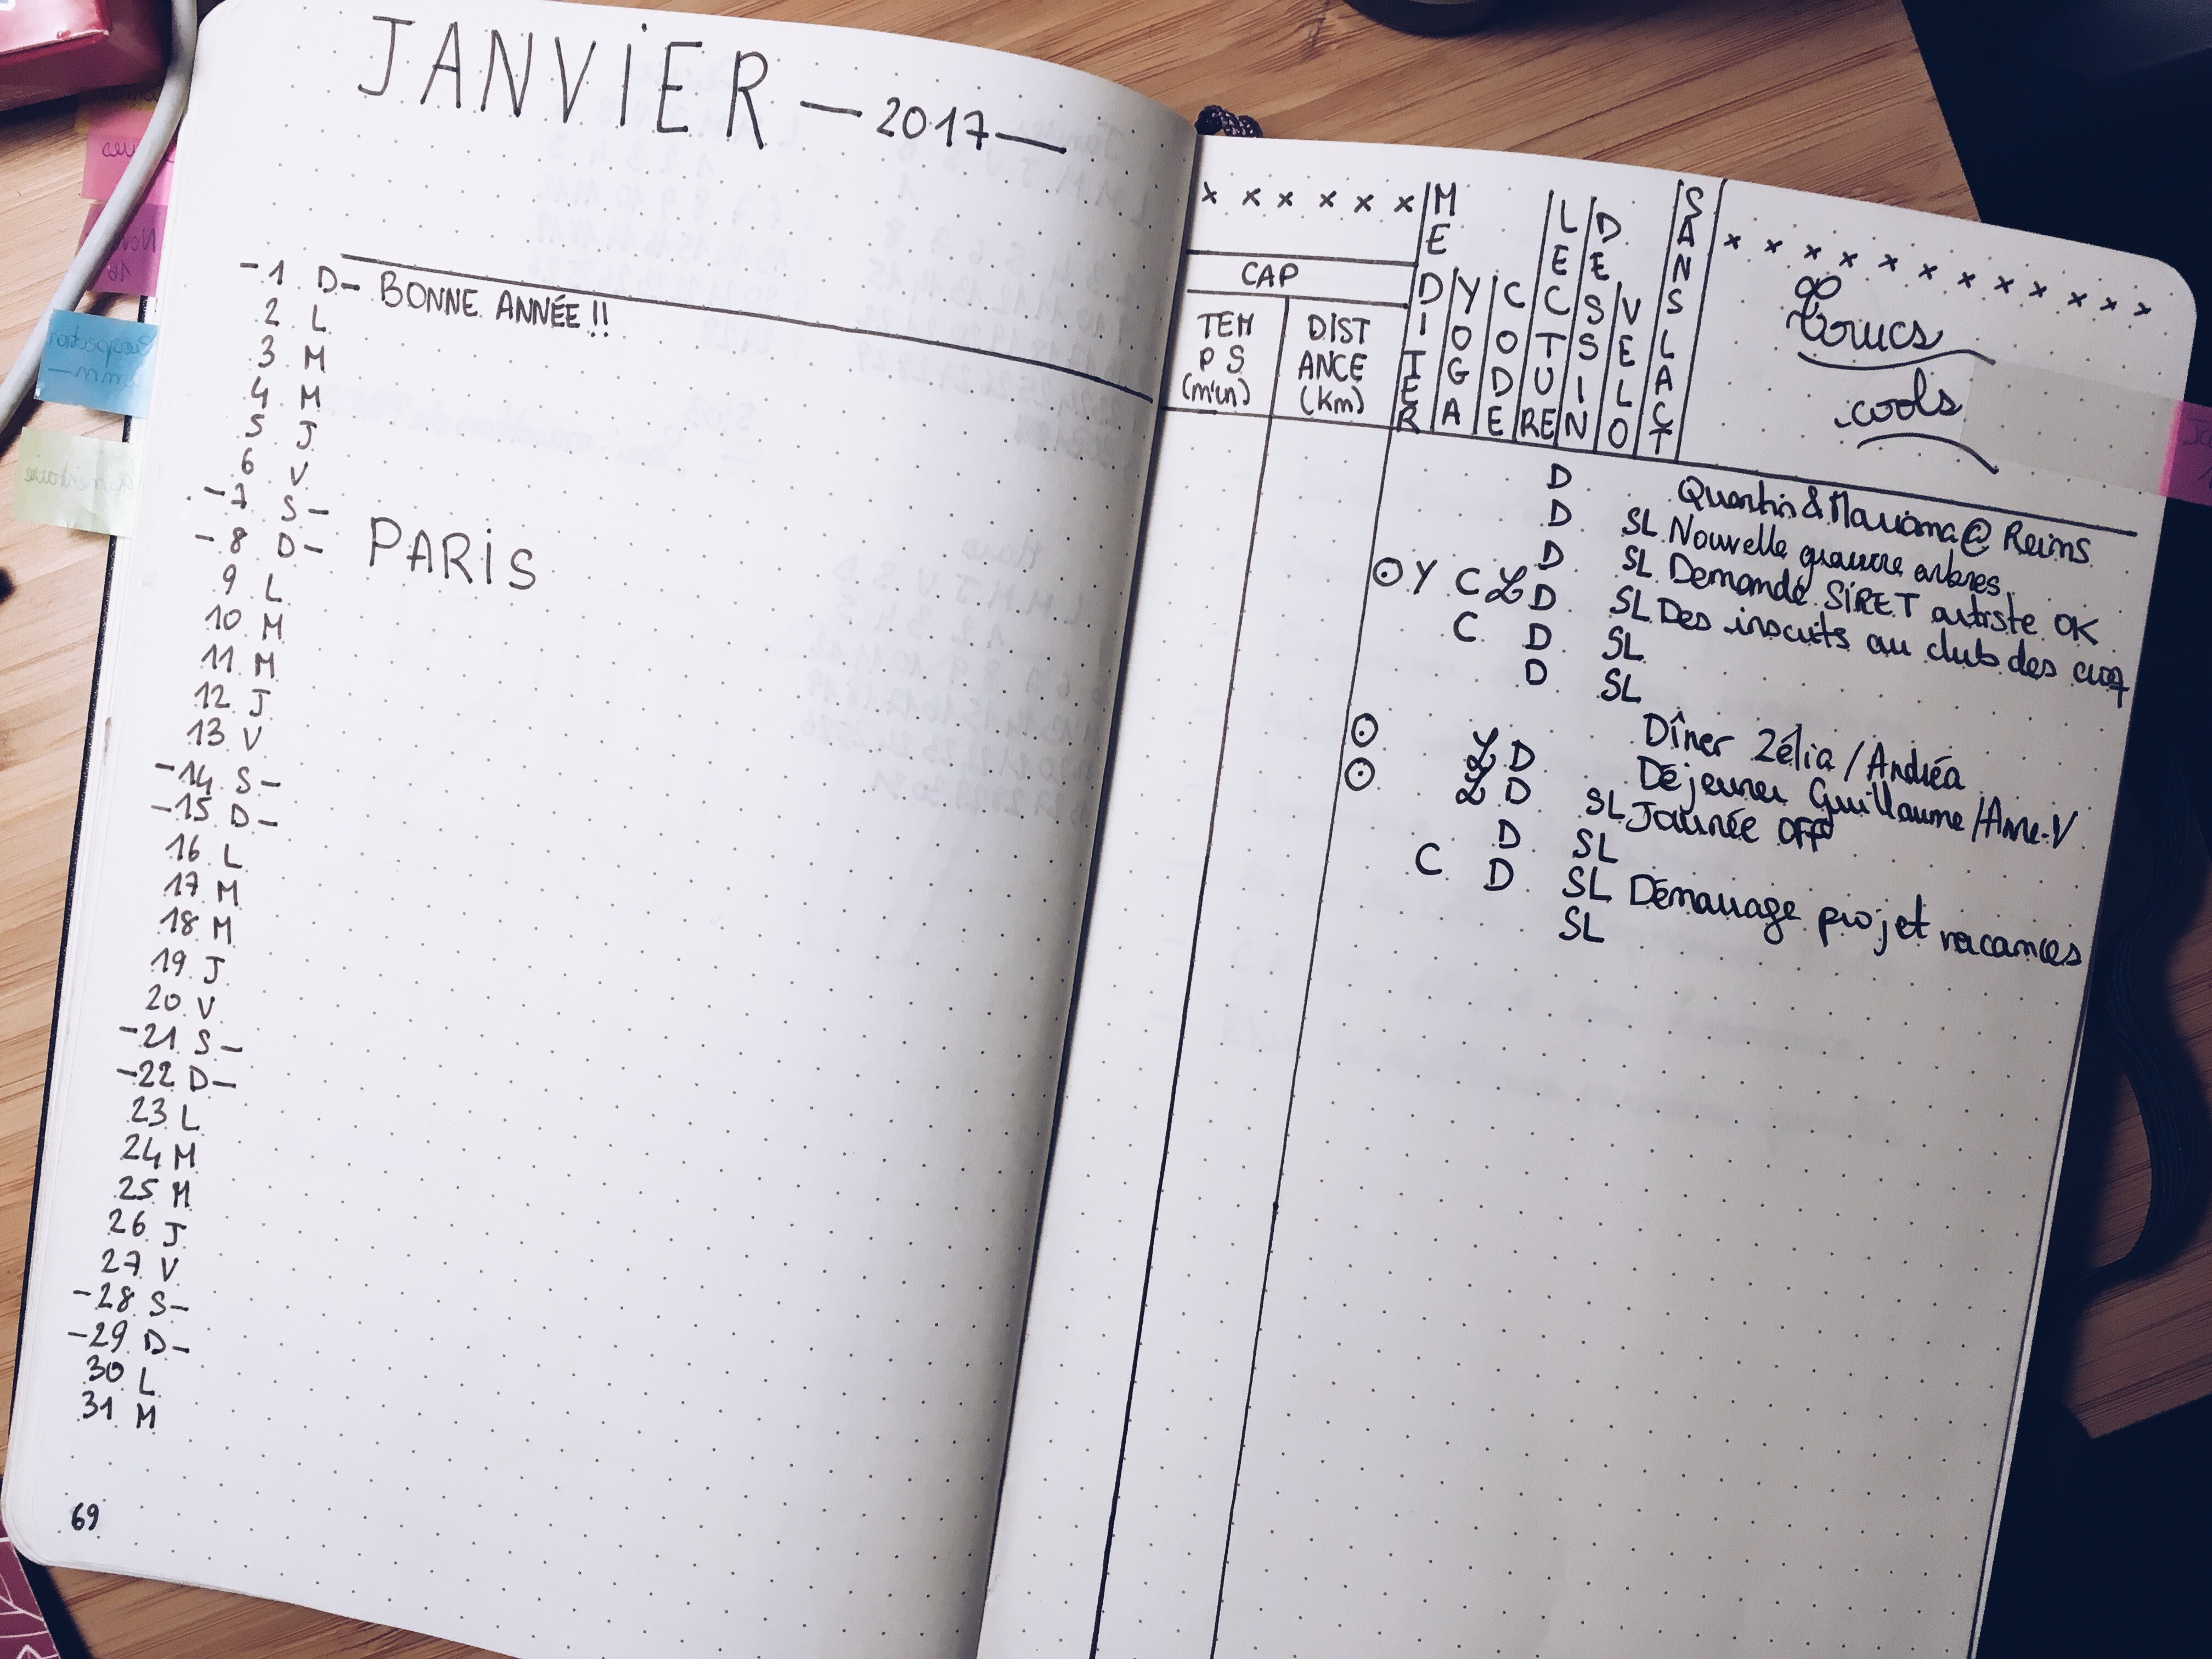 JANVIER — 2017 —
-1 D- BONNE ANNÉE !!
2 L
3 M
4 M
5 J
6 V
-7 S-
-8 D- PARIS
9 L
10 M
11 M
12 J
13 V
-14 S-
-15 D-
16 L
17 M
18 M
19 J
20 V
-21 S-
-22 D-
23 L
24 M
25 M
26 J
27 V
-28 S-
-29 D-
30 L
31 M
69
x x x x x x
CAP
TEMPS (min)
DISTANCE (Km)
MEDITER
YOGA
CODE
LECTURE
DESSIN
VELO
SANS LACT
x x x x x x x x x x x x
Trucs
cools
D Quentin & Mariama @ Reims
D SL Nouvelle gravure arbres
D SL Demande SIRET artiste OK
⊙ Y C L D SL Des inscrits au club des cinq
C D SL
D SL
⊙ L D Dîner Zélia / Andréa
⊙ L D Déjeuner Guillaume / Anne-V
D SL Journée OFF
C D SL
SL Démarrage projet vacances
SL